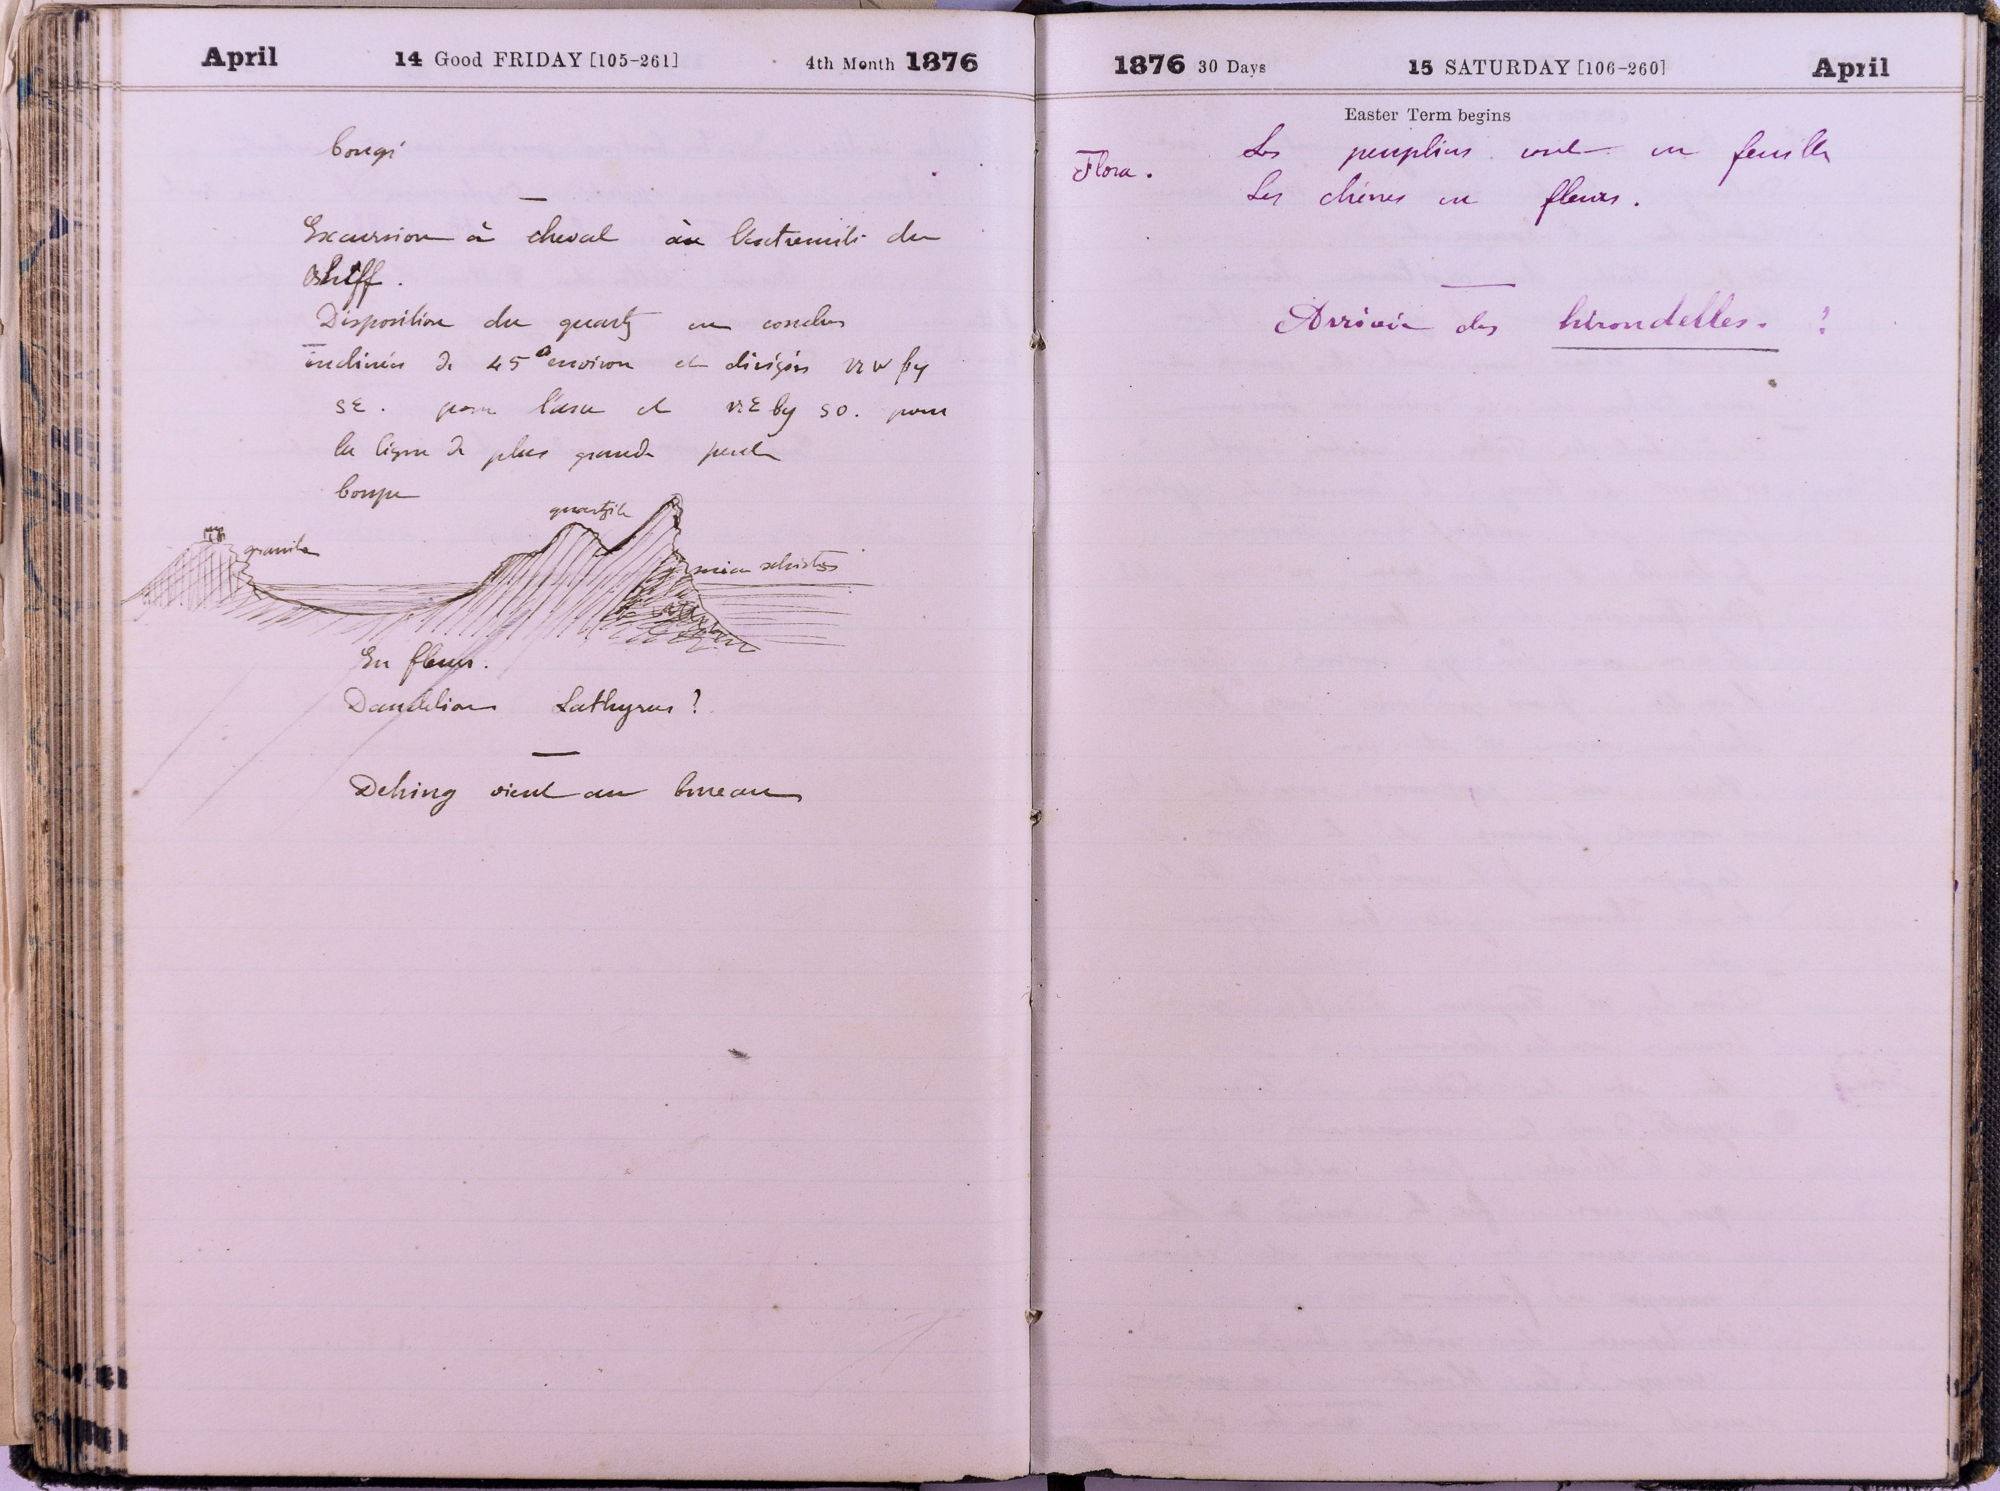 April 14 Good FRIDAY [105-261] 4th Month 1876
Congé
Excursion à cheval à l'extremité du
Disposition du quartz en couches
inclinées de 45° environ et dirigées NW by
SE. pour l'axe et NE by SO. pour
la ligne de plus grande pente
Coupe
quartzite
granite
mica schistes
En fleur.
Dandelions Lathyrus?
Dehing vient au bureau
1876 30 Days 15 SATURDAY [106-260] April
Easter Term begins
Flora.
Les peupliers sont en feuille
Les chênes en fleurs.
Arrivée des hirondelles. ?